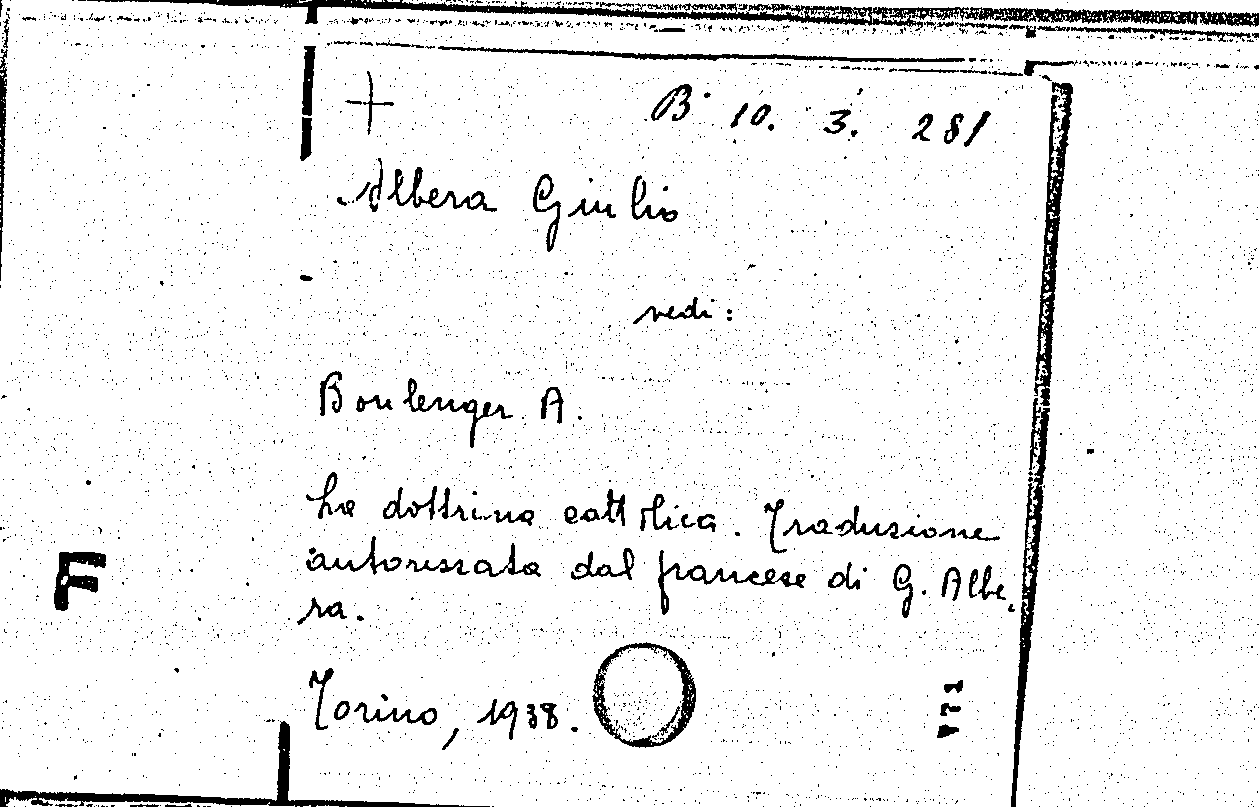 B 10. 3. 281
Albera Giulio
vedi:
Boulenger A.
La dottrina cattolica. Traduzione
autorizzata dal francese di G. Albe-
ra.
F
Torino, 1938.